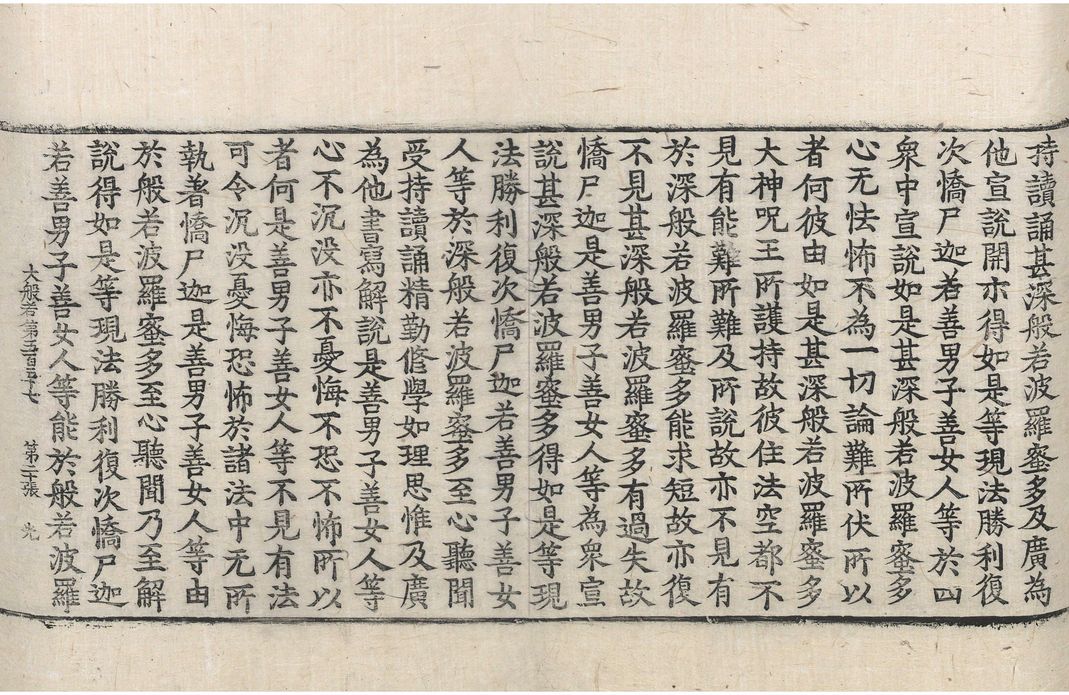 持讀誦甚深般若波羅蜜多及廣為
他宣說開亦得如是等現法勝利復
次憍尸迦若善男子善女人等於四
衆中宣說如是甚深般若波羅蜜多
心无怯怖不為一切論難所伏所以
者何彼由如是甚深般若波羅蜜多
大神呪王所護持故彼住法空都不
見有能難所難及所說故亦不見有
於深般若波羅蜜多能求短故亦復
不見甚深般若波羅蜜多有過失故
憍尸迦是善男子善女人等為衆宣
說甚深般若波羅蜜多得如是等現
法勝利復次憍尸迦若善男子善女
人等於深般若波羅蜜多至心聽聞
受持讀誦精勤修學如理思惟及廣
為他書寫解說是善男子善女人等
心不沉没亦不憂悔不恐不怖所以
者何是善男子善女人等不見有法
可令沉没憂悔恐怖於諸法中无所
執著憍尸迦是善男子善女人等由
於般若波羅蜜多至心聽聞乃至解
說得如是等現法勝利復次憍尸迦
若善男子善女人等能於般若波羅
大般若第五百五十七 第二十張 光